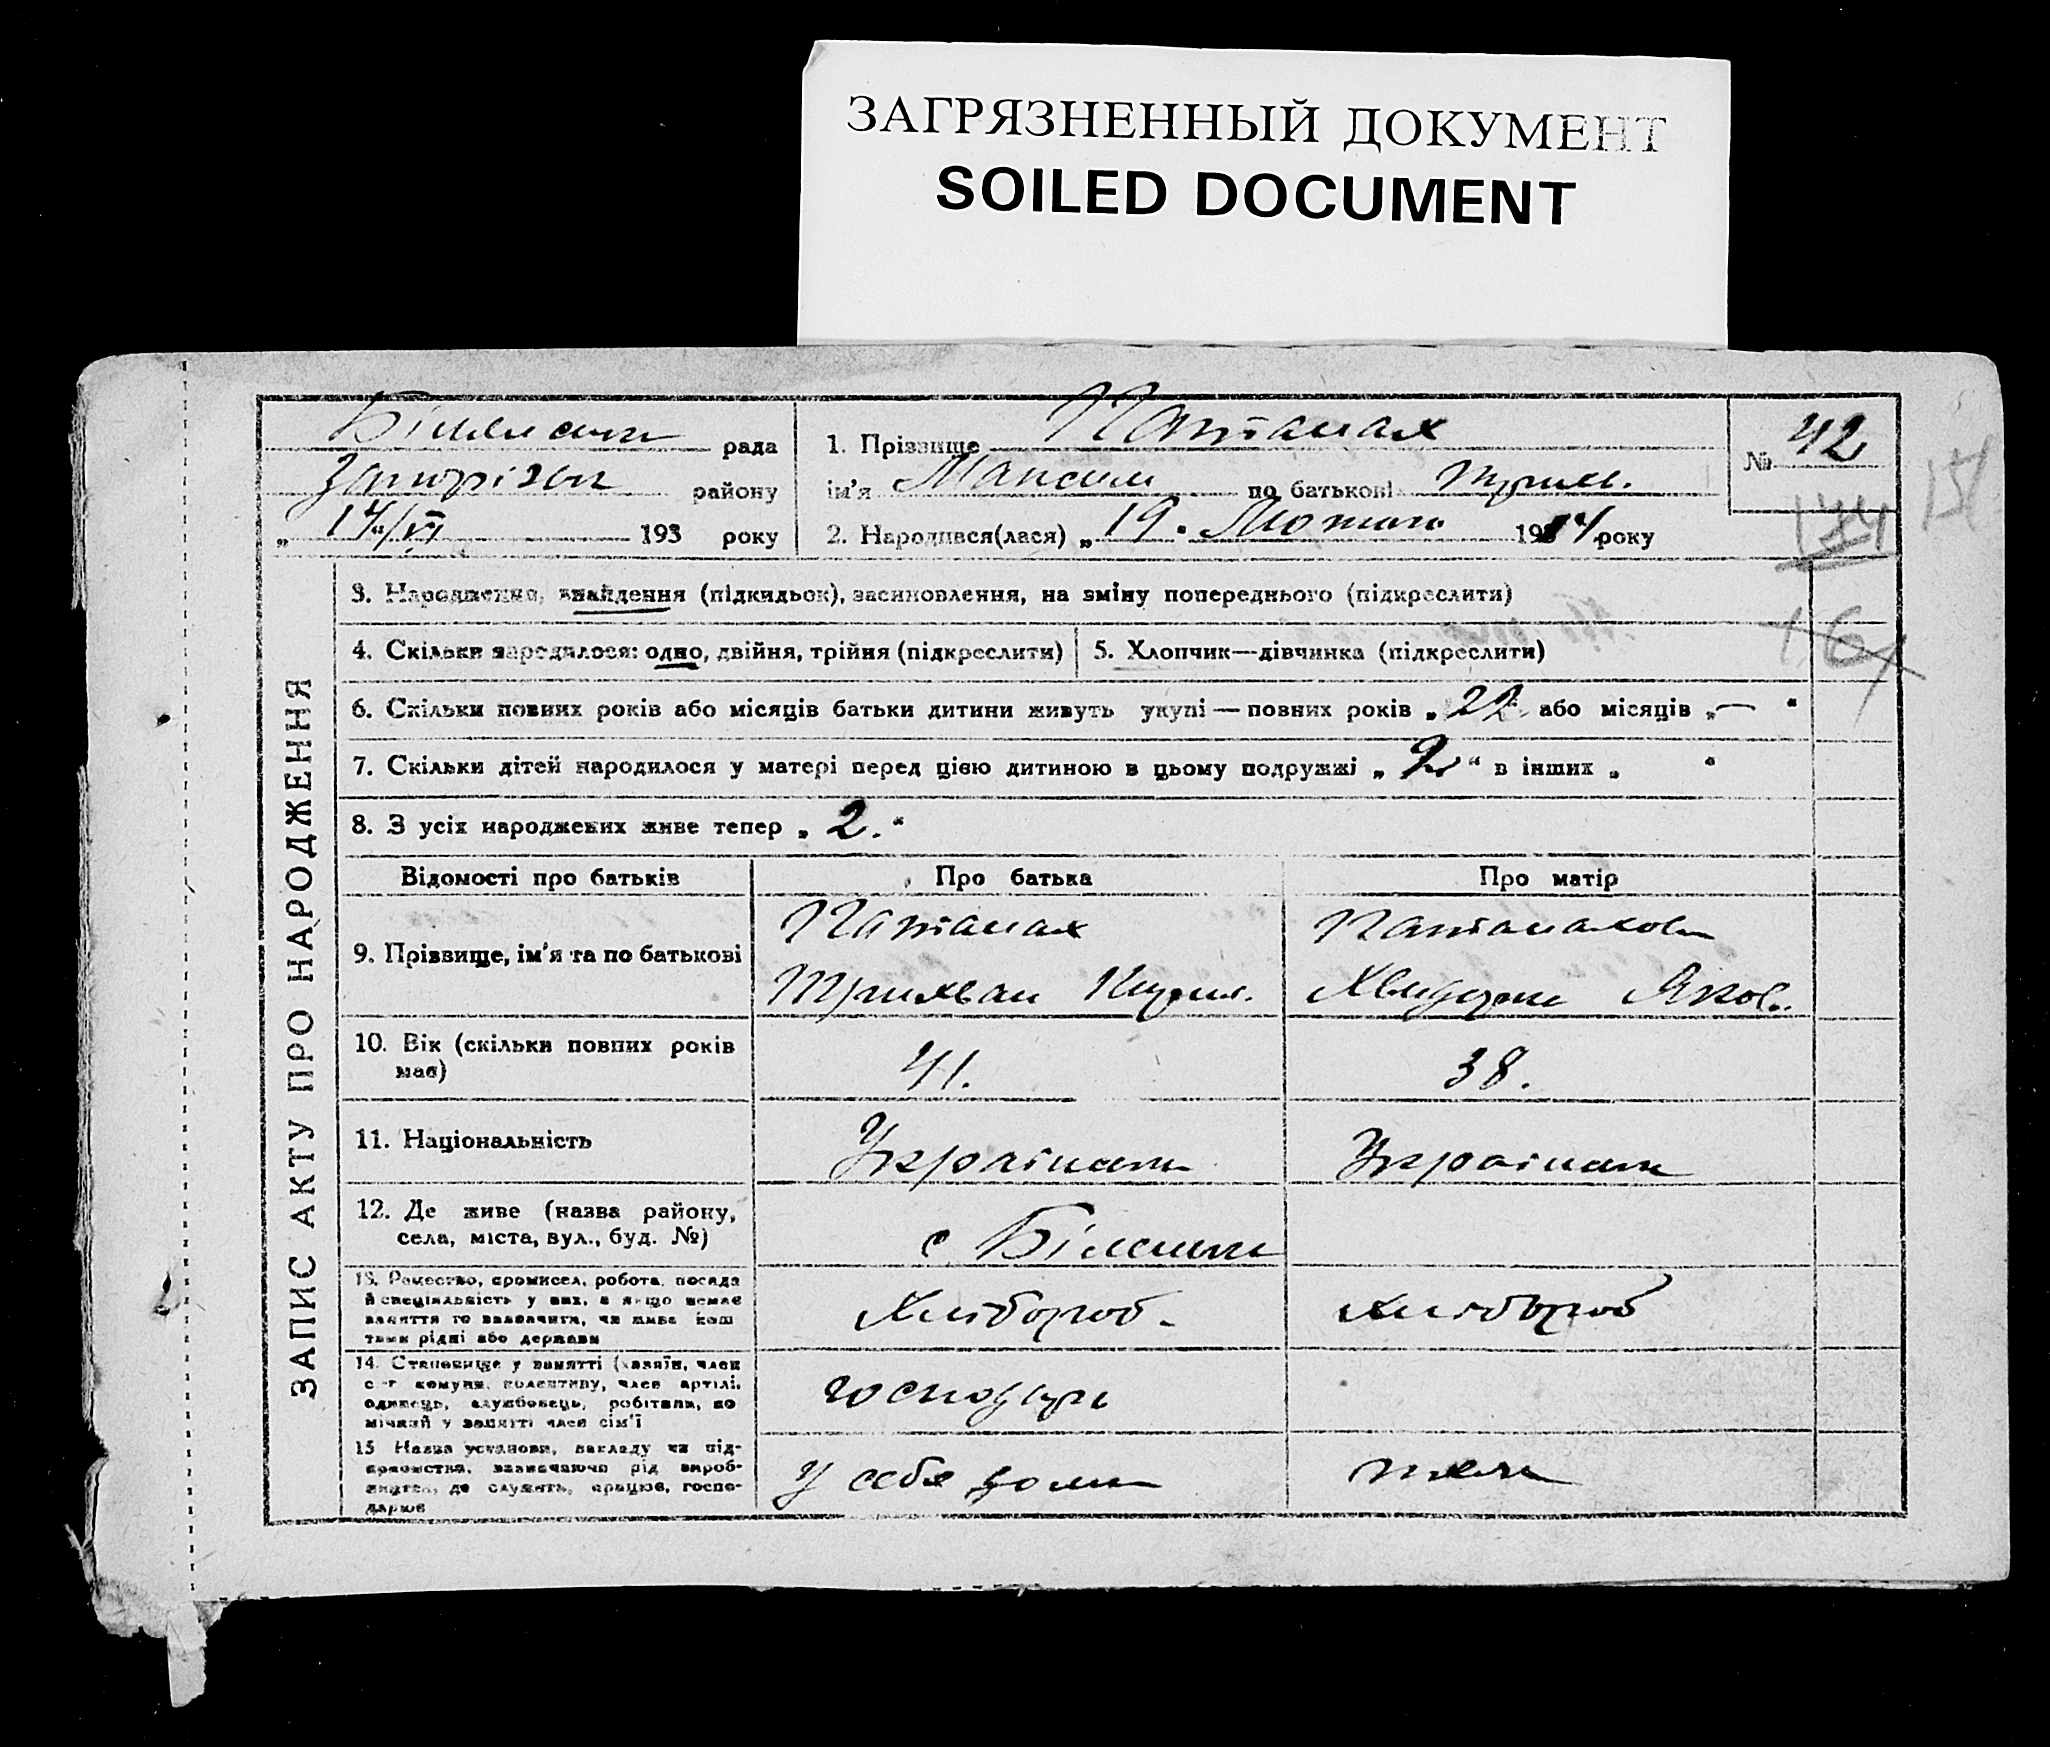 ЗАГРЯЗНЕННЫЙ ДОКУМЕНТ
SOILED DOCUMENT
рада
району
„ 14/VI 193 року
1. Прізвище
ім'я Максим по батькові Трихв.
2. Народився(лася) „ 19. Лютого 1914 року
№ 42
144
151
ЗАПИС АКТУ ПРО НАРОДЖЕННЯ
3. Народження, знайдення (підкидьок), засиновлення, на зміну попереднього (підкреслити)
4. Скільки народилося: одно, двійня, трійня (підкреслити)
5. Хлопчик—дівчинка (підкреслити)
6. Скільки повних років або місяців батьки дитини живуть укупі — повних років „ 22 “ або місяців „ — “
7. Скільки дітей народилося у матері перед цією дитиною в цьому подружжі „ 2 “ в інших „ “
8. З усіх народжених живе тепер „ 2. “
Відомості про батьків
Про батька
Про матір
9. Прізвище, ім'я та по батькові
Трихван Кирил.
Яков.
10. Вік (скільки повних років
має)
41.
38.
11. Національність
Українець
Українка
12. Де живе (назва району,
села, міста, вул., буд. №)
с
13. Ремество, промисел, робота, посада
й спеціяльність у них, а якщо немає
заняття то зазначити, чи живе кош
тами рідні або держави
Хлібороб -
хлібороб
14. Становище у занятті (хазяїн, член
с-г комуни, колективу, член артілі,
одинець, службовець, робітник, по
мічний у занятті член сім'ї
господарь
15 Назва установи, закладу чи під-
приємства, зазначаючи рід вироб-
ництва, де служить, працює, госпо-
дарює
У себя дома
теж